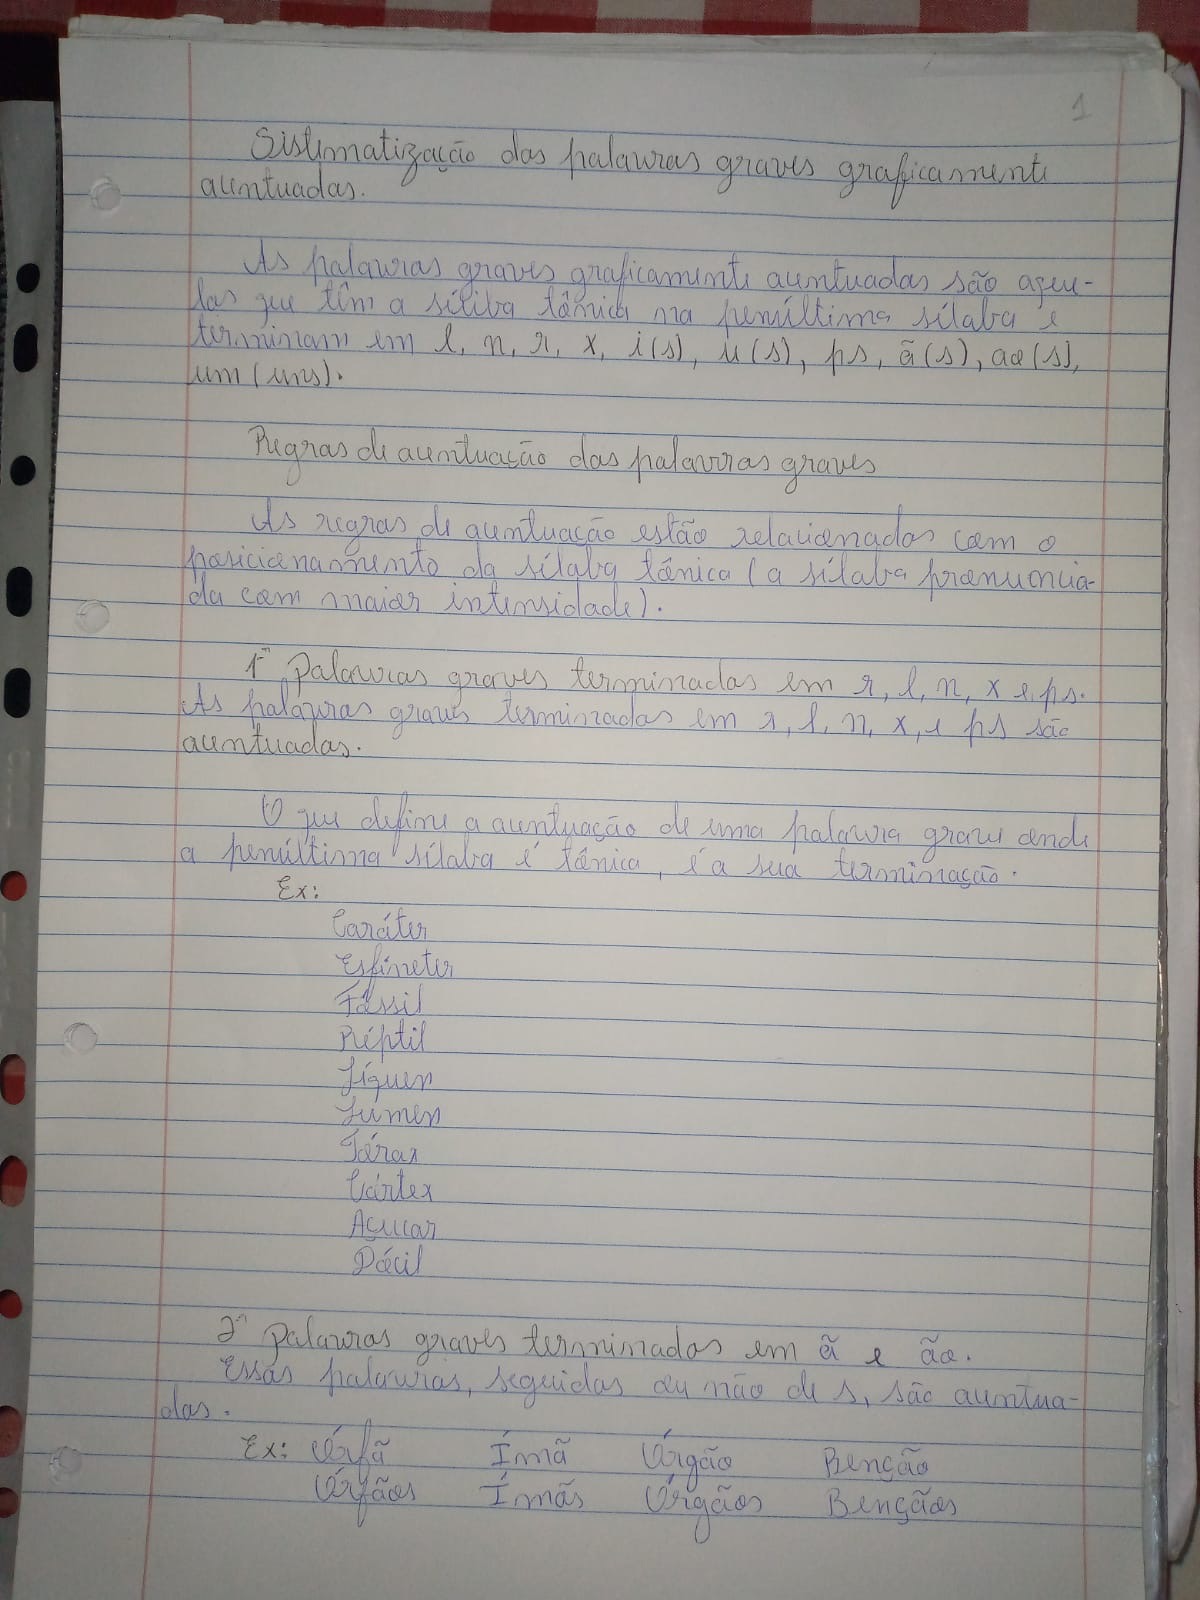 1
Sistematização das palavras graves graficamente
acentuadas.
As palavras graves graficamente acentuadas são aque-
las que têm a síliba tônica na penúltima sílaba e
terminam em l, n, r, x, i(s), u(s), ps, ã(s), ao(s),
um (uns).
Regras de acentuação das palavras graves
As regras de acentuação estão relacionadas com o
posicionamento da sílaba tônica (a sílaba pronuncia-
da com maior intensidade).
1ª Palavras graves terminadas em r, l, n, x e ps.
As palavras graves terminadas em r, l, n, x, e ps são
acentuadas.
O que define a acentuação de uma palavra grave onde
a penúltima sílaba é tônica, é a sua terminação.
Ex:
Caráter
Esfíncter
Fóssil
Réptil
Líquen
Lúmen
Tórax
Córtex
Açucar
Dócil
2ª Palavras graves terminadas em ã e ão.
Essas palavras, seguidas ou não de s, são acentua-
das.
Ex: Órfã Ímã Órgão Benção
Órfãos Ímãs Órgãos Bençãos